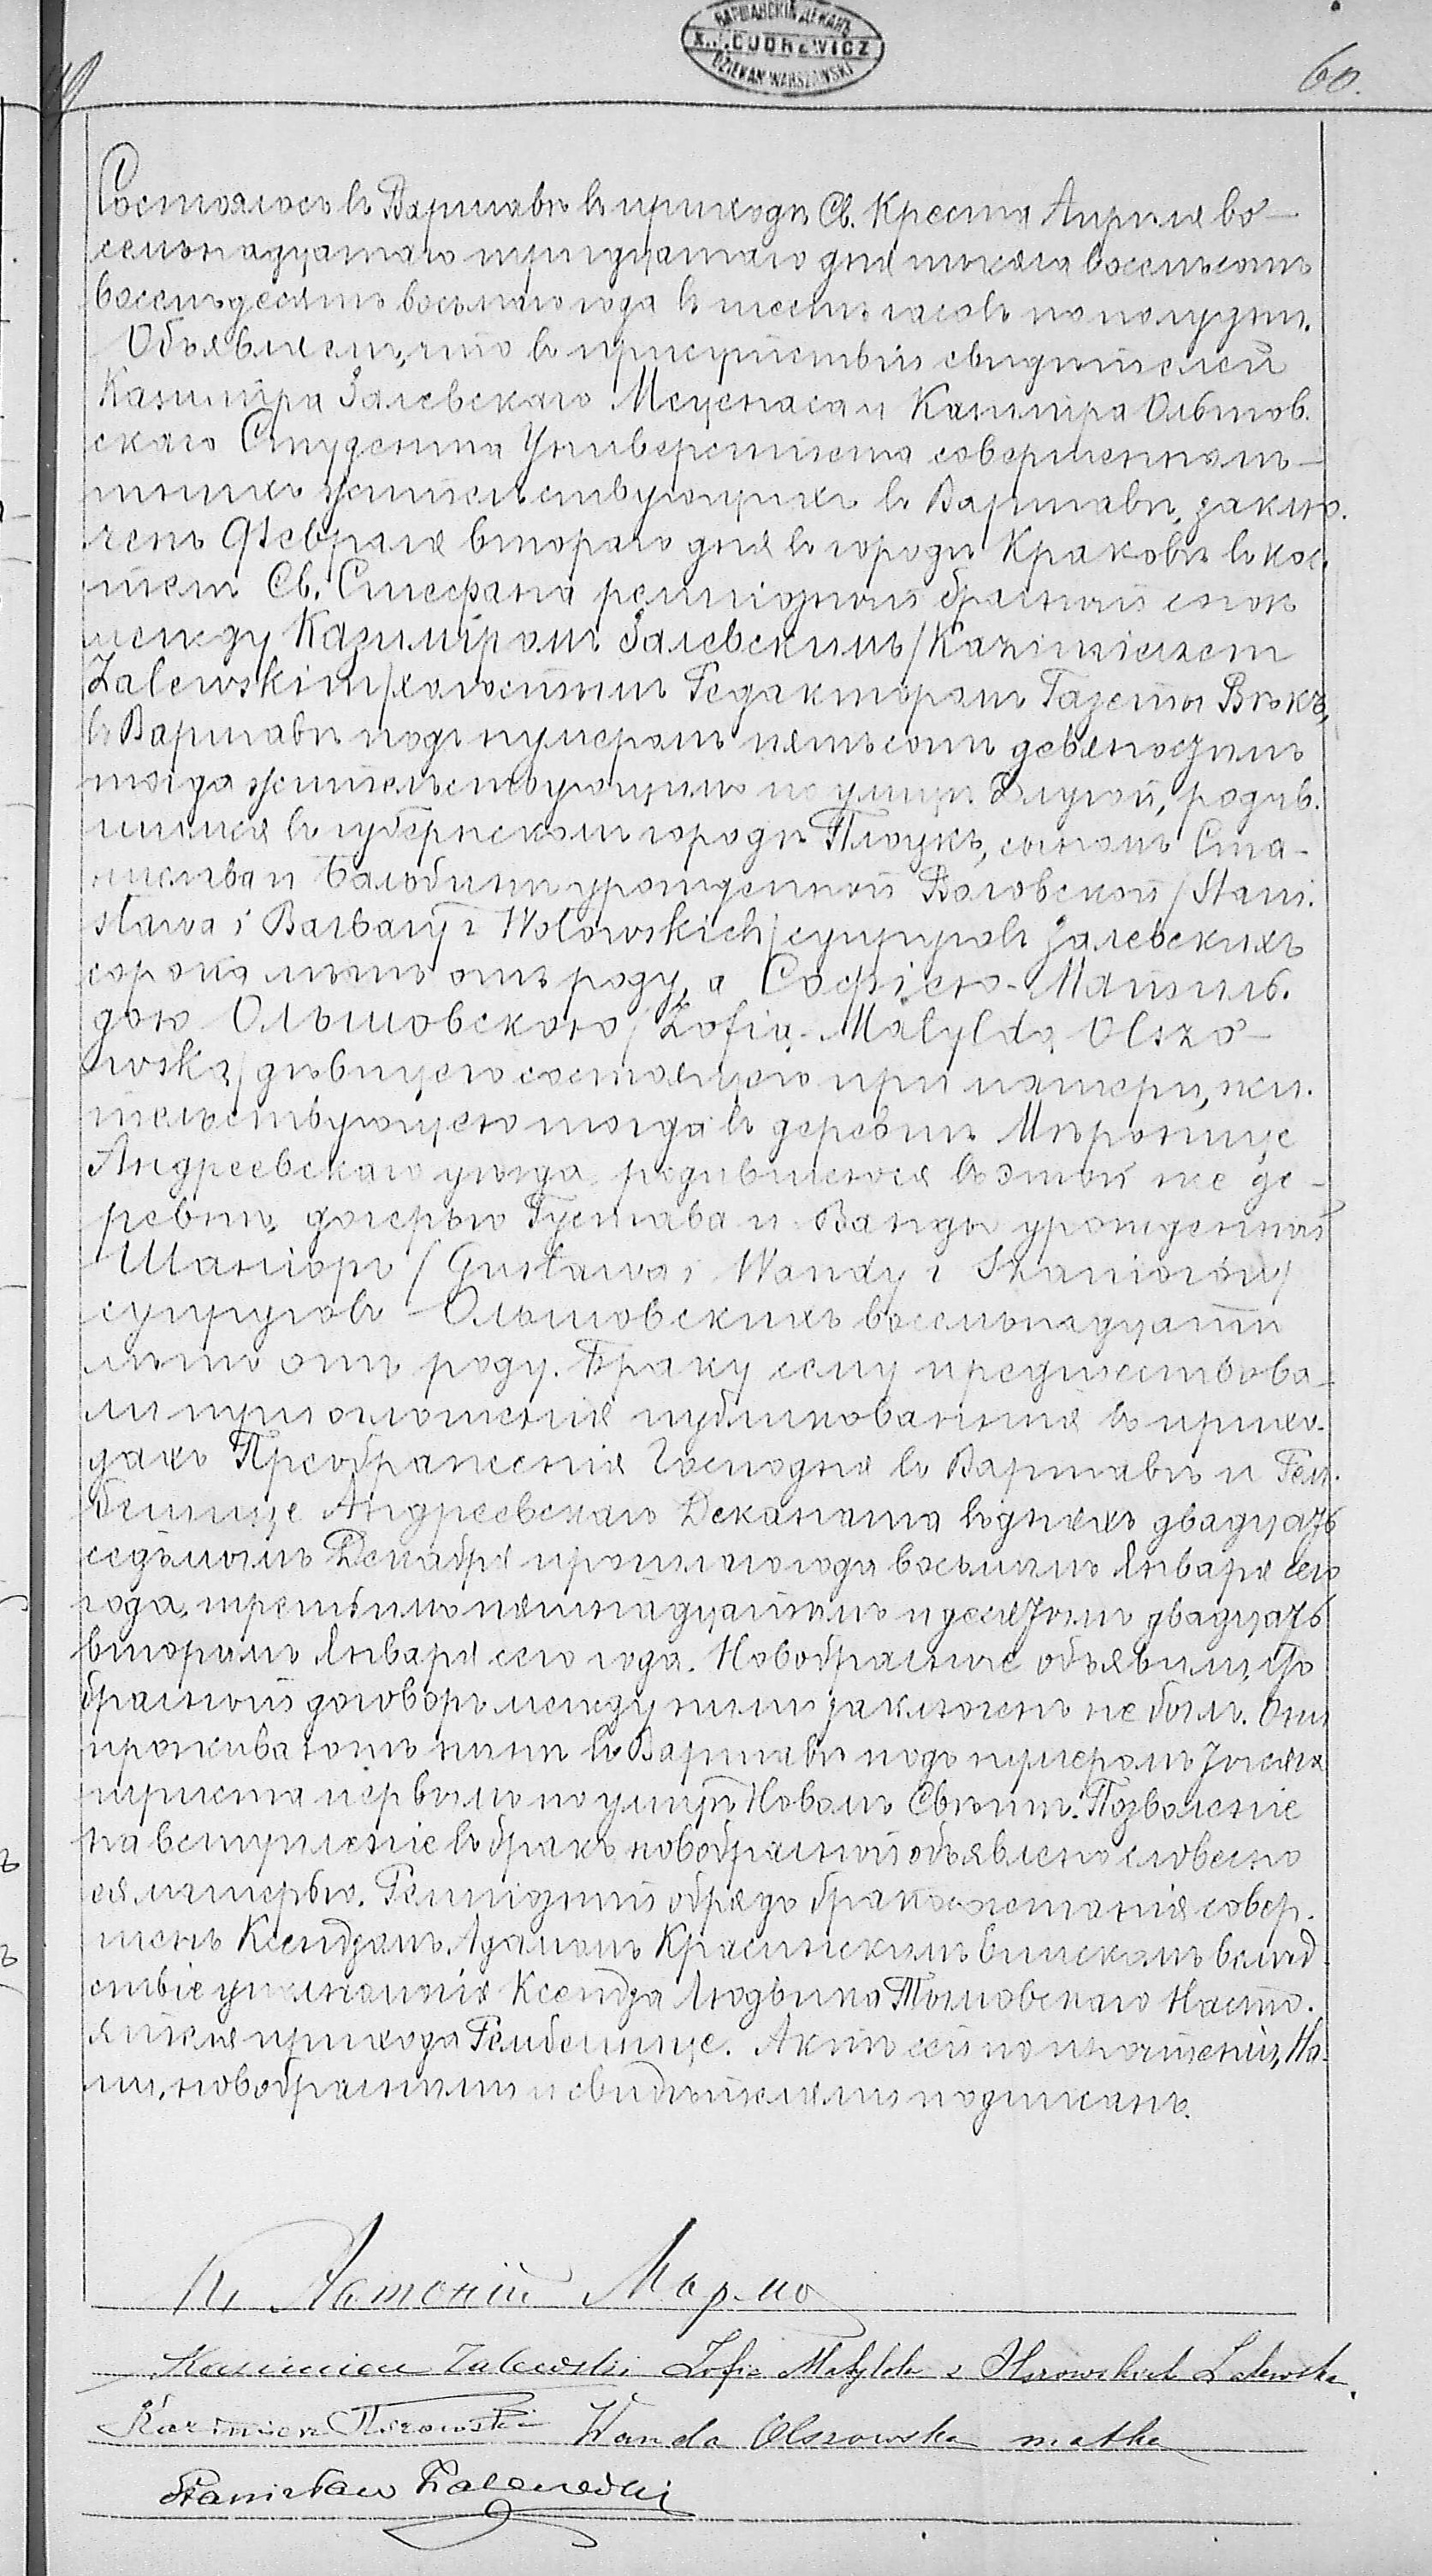 ВАРШАВСКІЙ ДЕКАНЪ
DZIEKAN WARSZAWSKI
60.
Состоялось въ Варшавѣ въ приходѣ Св. Креста Апрѣля во-
семнадцатаго тридцатаго дня тысяча восемьсотъ
восемьдесятъ восьмаго года въ шесть часовъ по полудни.
Объявляемъ, что въ присутствіи свидѣтелей
Казиміра Залевскаго Меценаса и Казиміра Ольшов.
скаго Студента Университета совершеннолѣ-
тнихъ жительствующихъ въ Варшавѣ, заклю.
ченъ Февраля втораго дня въ городѣ Краковѣ въ кос.
телѣ Св. Стефана религіозный брачный союзъ
между Казиміромъ Залевскимъ /Kazimierzem
Zalewskim/ холостымъ Редакторомъ Газеты Вѣкъ,
въ Варшавѣ подъ нумеромъ пятьсотъ девяностымъ
тогда жительствующимъ по улицѣ Длугой, родив.
шимся въ губернскомъ городѣ Плоцкѣ, сыномъ Ста-
нислава и Вальбины урожденной Воловской /Stani.
sława i Barbary z Wołowskich/ супруговъ Залевскихъ
сорока лѣтъ отъ роду, а Софіею-Матиль.
дою Ольшовскою /Zofią-Matyldą Olszo-
wską/ дѣвицею состоящею при матери, жи.
тельствующею тогда въ деревнѣ Мѣронице
Андреевскаго уѣзда родившеюся въ этой же де-
ревнѣ, дочерью Густава и Ванды урожденной
Шаніоръ /Gustawa i Wandy z Szaniorów/
супруговъ Ольшовскихъ восемнадцати
лѣтъ отъ роду. Браку сему предшествова-
ли три оглашенія публикованныя въ прихо-
дахъ Преображенія Господня въ Варшавѣ и Гем-
бешице Андреевскаго Деканата въ дняхъ двадцать
седьмомъ Декабря прошлаго года восьмомъ Января сего
года, третьимъ пятнадцатомъ и десятомъ двадцать
второмъ Января сего года. Новобрачные объявили, что
брачный договоръ между ними заключенъ не былъ. Они
проживаютъ нынѣ въ Варшавѣ подъ нумеромъ тысяча
триста первымъ по улицѣ Новомъ Свѣтѣ. Позволеніе
на вступленіе въ бракъ новобрачной объявлено словесно
ея матерью. Религіозный обрядъ бракосочетанія совер.
шенъ Ксендзомъ Адамомъ Красинскимъ вслѣд
ствіе уполномочія Ксендза Людвика Насто.
ятеля прихода Гембешице. Актъ сей по прочтеніи, На-
ми, новобрачными и свидѣтелями подписанъ.
Кс. Антоній
Kazimierz Zalewski Zofia Matylda z Olszowskich Zalewska.
Kazimierz Olszowski Wanda Olszowska matka
Stanisław Zalewski